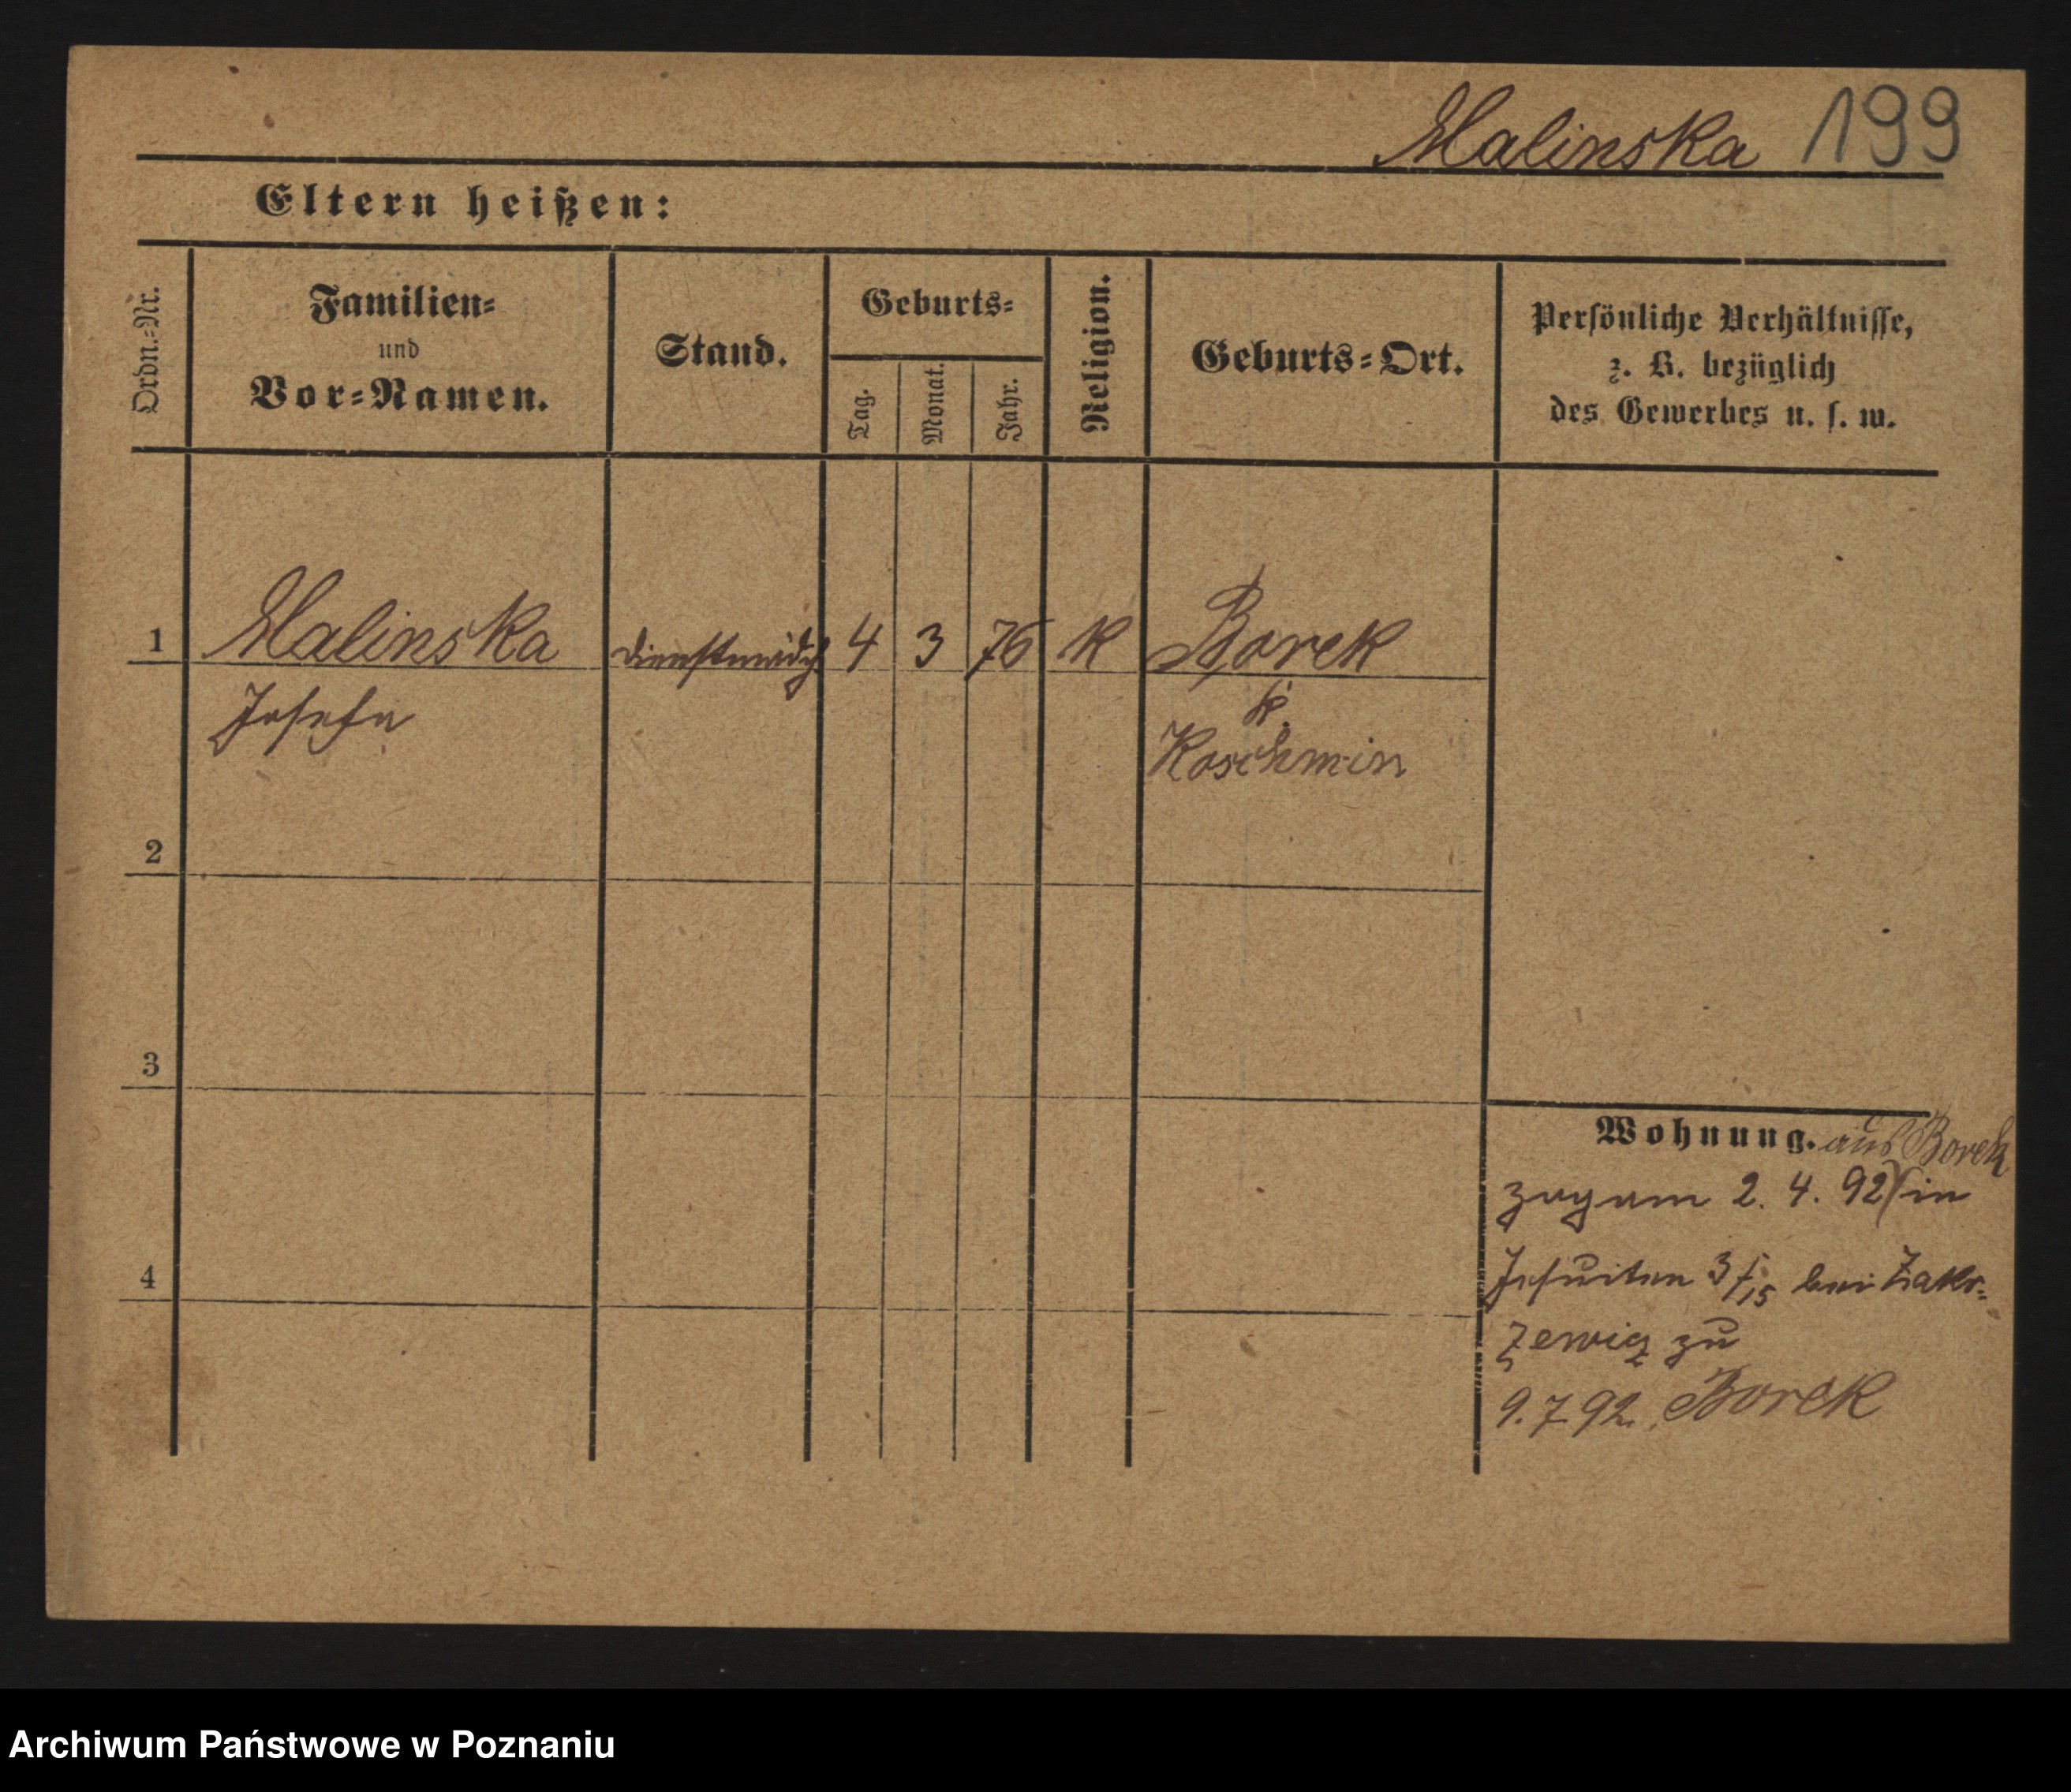 Malinska 199
Eltern heißen:
Ordn.-Nr.
Familien-
und
Vor-Namen.
Stand.
Geburts-
Tag.
Monat.
Jahr.
Religion.
Geburts-Ort.
Persönliche Verhältnisse,
z. B. bezüglich
des Gewerbes u. s. w.
1 Malinska Dienstmädch 4 3 76 K Borek
Josefa
k.
Koschmin
2
3
4
Wohnung. aus Borek
zog am 2. 4. 92 in
Jesuiten 3/15 bei Zakr-
zewicz zu
9. 7 92. Borek
Archiwum Państwowe w Poznaniu